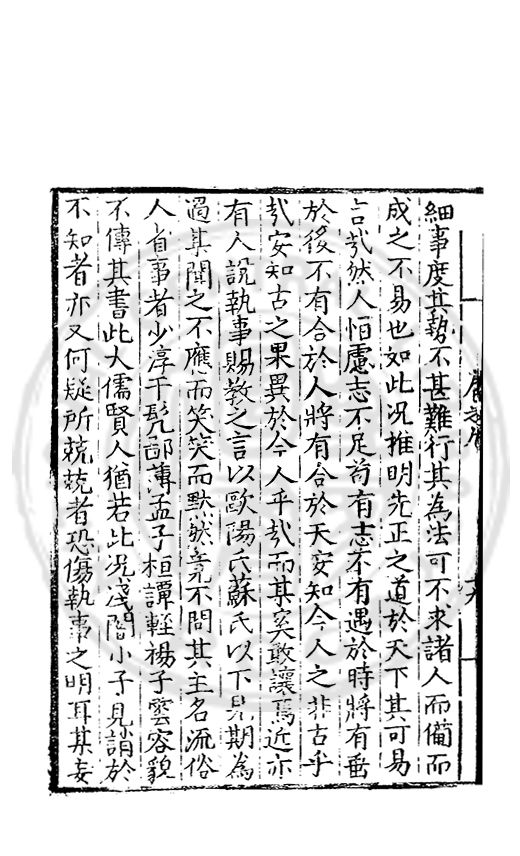 細事度其勢不甚難行其為法可不求諸人而備而
成之不易也如此况推明先正之道於天下其可易
言哉然人怕慮志不足苟有志不有遇於時將有垂
於後不有合於人將有合於天安知今人之非古乎
哉安知古之果異於今人乎哉而某奚敢讓焉近亦
有人說執事賜教之言以歐陽氏蘇氏以下見期為
過某聞之不應而笑笑而默然竟不問其主名流俗
人省事者少淳于髠鄙薄孟子桓譚輕揚子雲容貌
不傳其書此大儒賢人猶若此况淺闇小子見誚於
不知者亦又何疑所兢兢者恐傷執事之明耳某妄